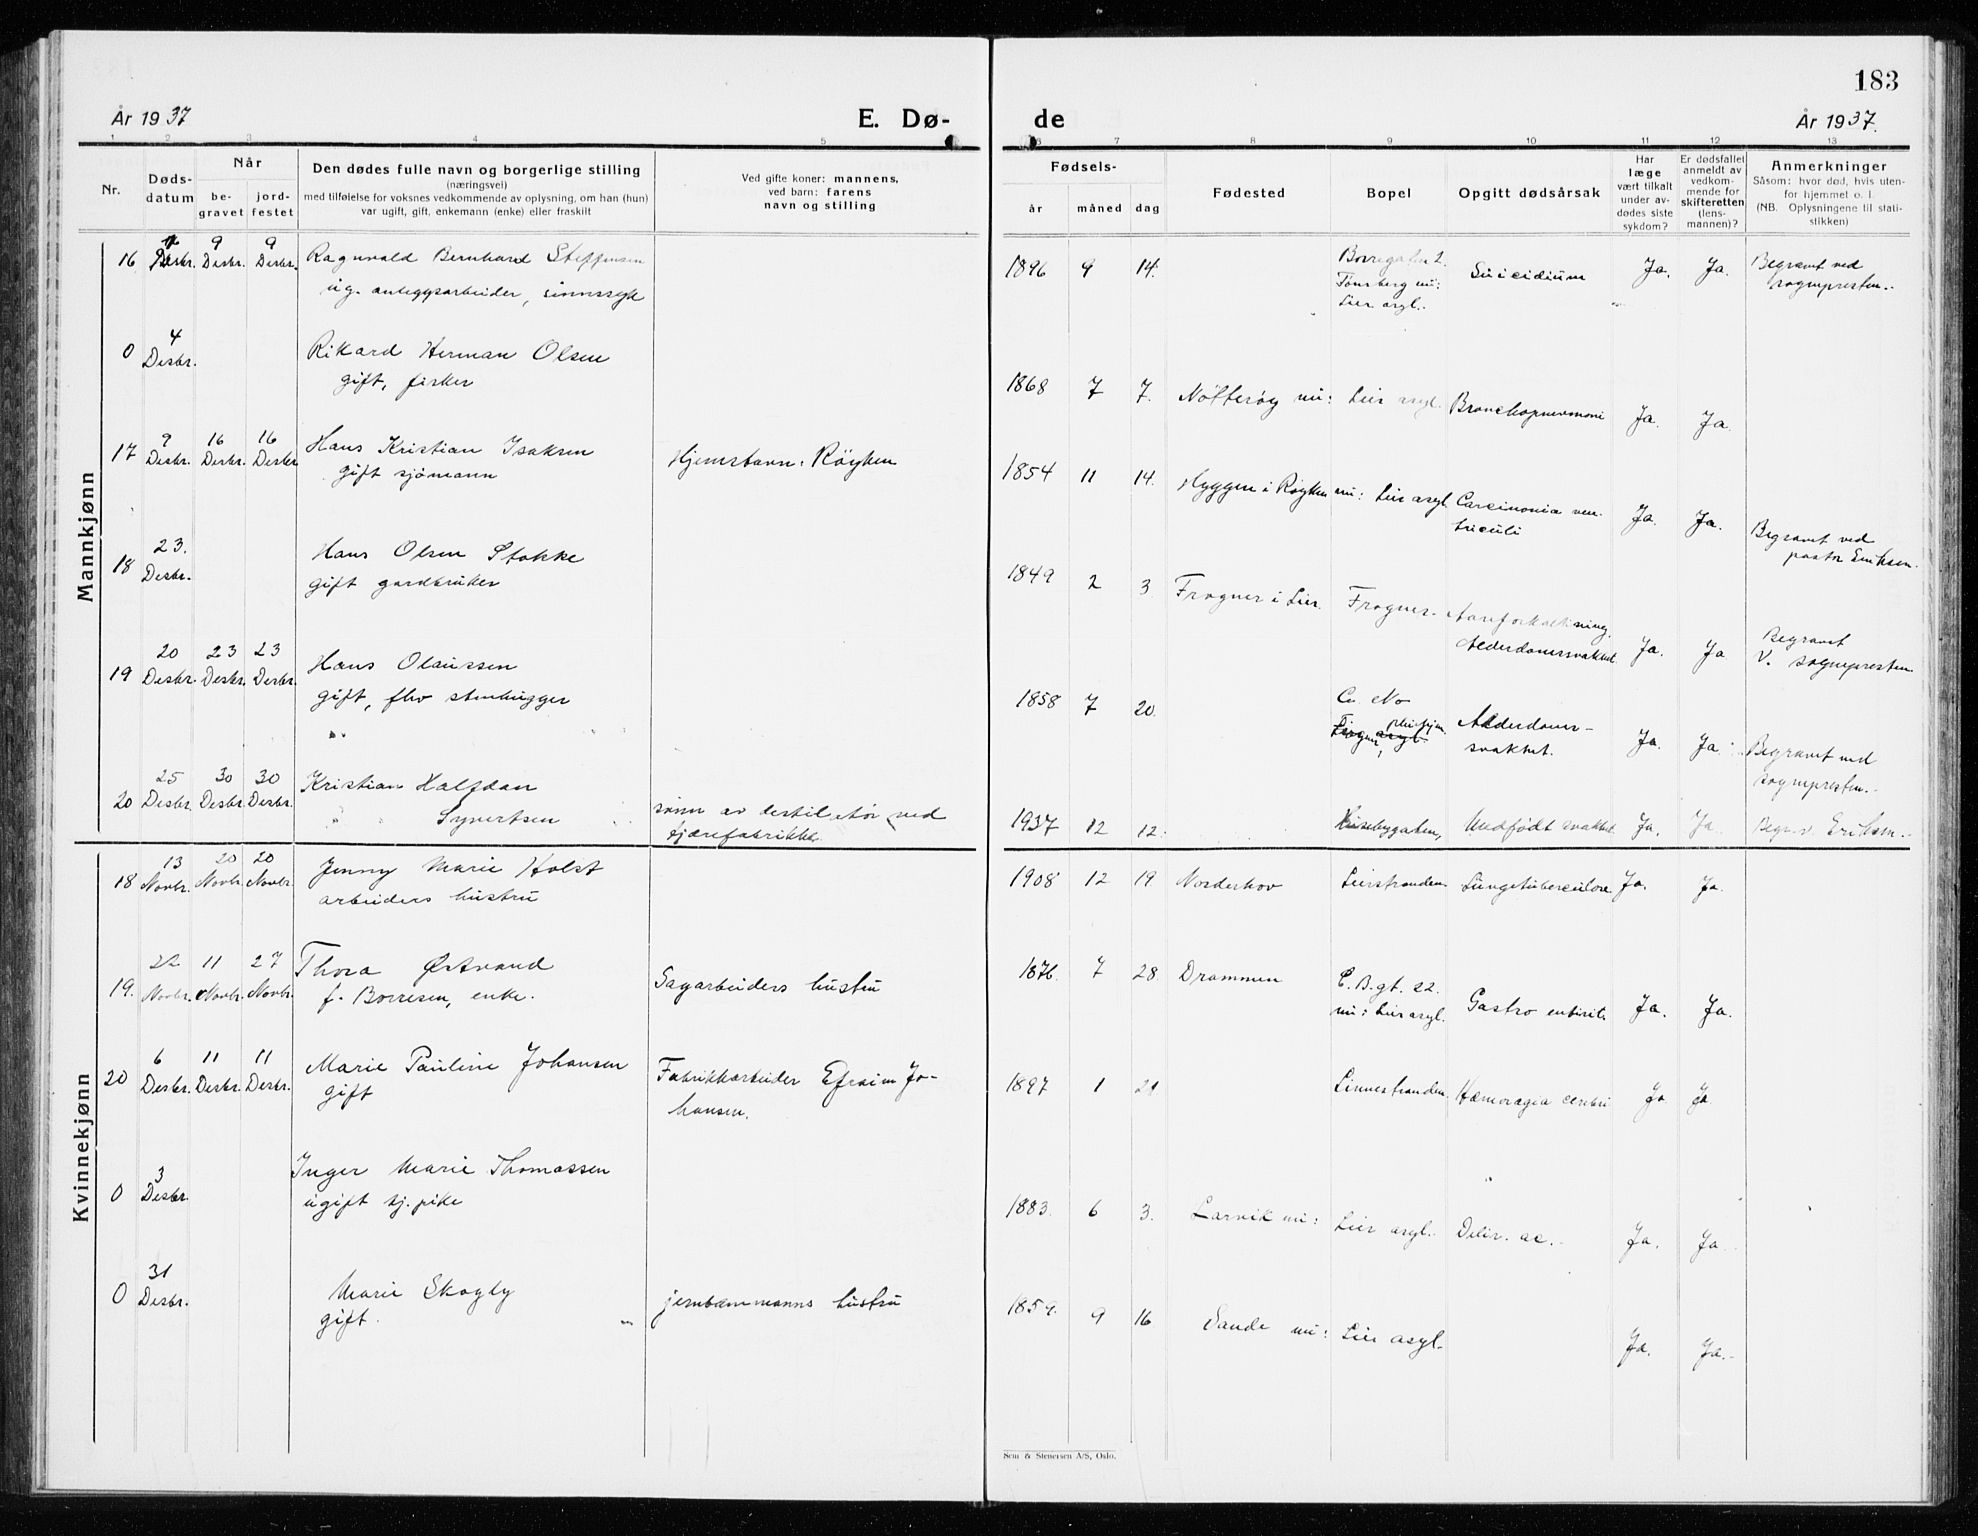 183
År 1937
E. Dø-
de
År 1937.
1 2 3 4 5
6 7 8 9 10 11 12 13
Nr.
Døds-
datum
Når
be-
gravet
jord-
festet
Den dødes fulle navn og borgerlige stilling
(næringsvei)
med tilføielse for voksnes vedkommende av oplysning, om han (hun)
var ugift, gift, enkemann (enke) eller fraskilt
Ved gifte koner: mannens,
ved barn: farens
navn og stilling
Fødsels-
år
måned
dag
Fødested
Bopel
Opgitt dødsårsak
Har
læge
vært tilkalt
under av-
dødes siste
sykdom?
Er dødsfallet
anmeldt av
vedkom-
mende for
skifteretten
(lens-
mannen)?
Anmerkninger
Såsom: hvor død, hvis uten-
for hjemmet o. l.
(NB. Oplysningene til stati-
stikken)
Mannkjønn
16 Desbr. 9 Desbr. 9 Desbr. Ragnvald Bernhard Steffensen
ug. anleggsarbeider, sinnssyk
1896 9 14.
Tønsberg nu:
Lier asyl.
Suicidium Ja. Ja. Begravet ved
sognepresten.
0 4 Desbr. Rikard Herman Olsen
gift, fisker
1868 7 7. Nøtterøy nu: Lier asyl. Bronchopneumoni Ja. Ja.
17 9 Desbr. 16 Desbr. 16 Desbr. Hans Kristian Isaksen
gift sjømann
Hjemstavn: Røyken
1854 11 14. Hyggen i Røyken nu: Lier asyl. Carcinonia ven-
triculi Ja. Ja. Begravet ved
pastor Eriksen.
18 23. Desbr. Hans Olsen Stokke
gift gardbruker
1849 2 3. Frogner i Lier. Frogner. Aareforkalkning.
Alderdomssvakhet Ja. Ja Begravet
v. sognepresten
19 20 Desbr. 23 Desbr. 23 Desbr. Hans Olaussen
gift, fhv stenhugger
1858 7 20.
Frogner,
Alderdoms-
svakhet. Ja. Ja. Begravet ved
sognepresten.
20 25 Desbr. 30 Desbr. 30 Desbr. Kristian Halfdan
Syvertsen
sønn av destilatør ved
tjærefabrikke.
1937 12 12. Husebygaten, Medfødt svakhet Ja. Ja. Begr. v. Eriksen.
Kvinnekjønn
18 13 Novbr. 20 Novbr. 20 Novbr. Jenny Marie Holst
arbeiders hustru
1908 12 19. Norderhov Lierstranden Lungetuberculose Ja. Ja.
19. 22 Novbr. 11 Novbr. 27 Novbr. Thora Østrand
f. Borresen, enke.
Sagarbeiders hustru
1876. 7 28. Drammen C. B. gt. 22.
nu: Lier asyl. Gastro enterit. Ja. Ja.
20 6 Desbr. 11 Desbr. 11 Desbr. Marie Pauline Johansen
gift
Fabrikkarbeider Efraim Jo-
hansen.
1897 1 21 Linnestranden. Hæmoragia cerebri Ja Ja.
0 3 Desbr. Inger Marie Thomassen
ugift tj. pike
1883. 6 3. Larvik nu: Lier asyl. Delir. ac. Ja. Ja.
0 31 Desbr. Marie Skogly
gift.
jernbanemanns hustru
1859. 9 16 Sande nu: Lier asyl. Ja. Ja.
Sem & Stenersen A/S, Oslo.